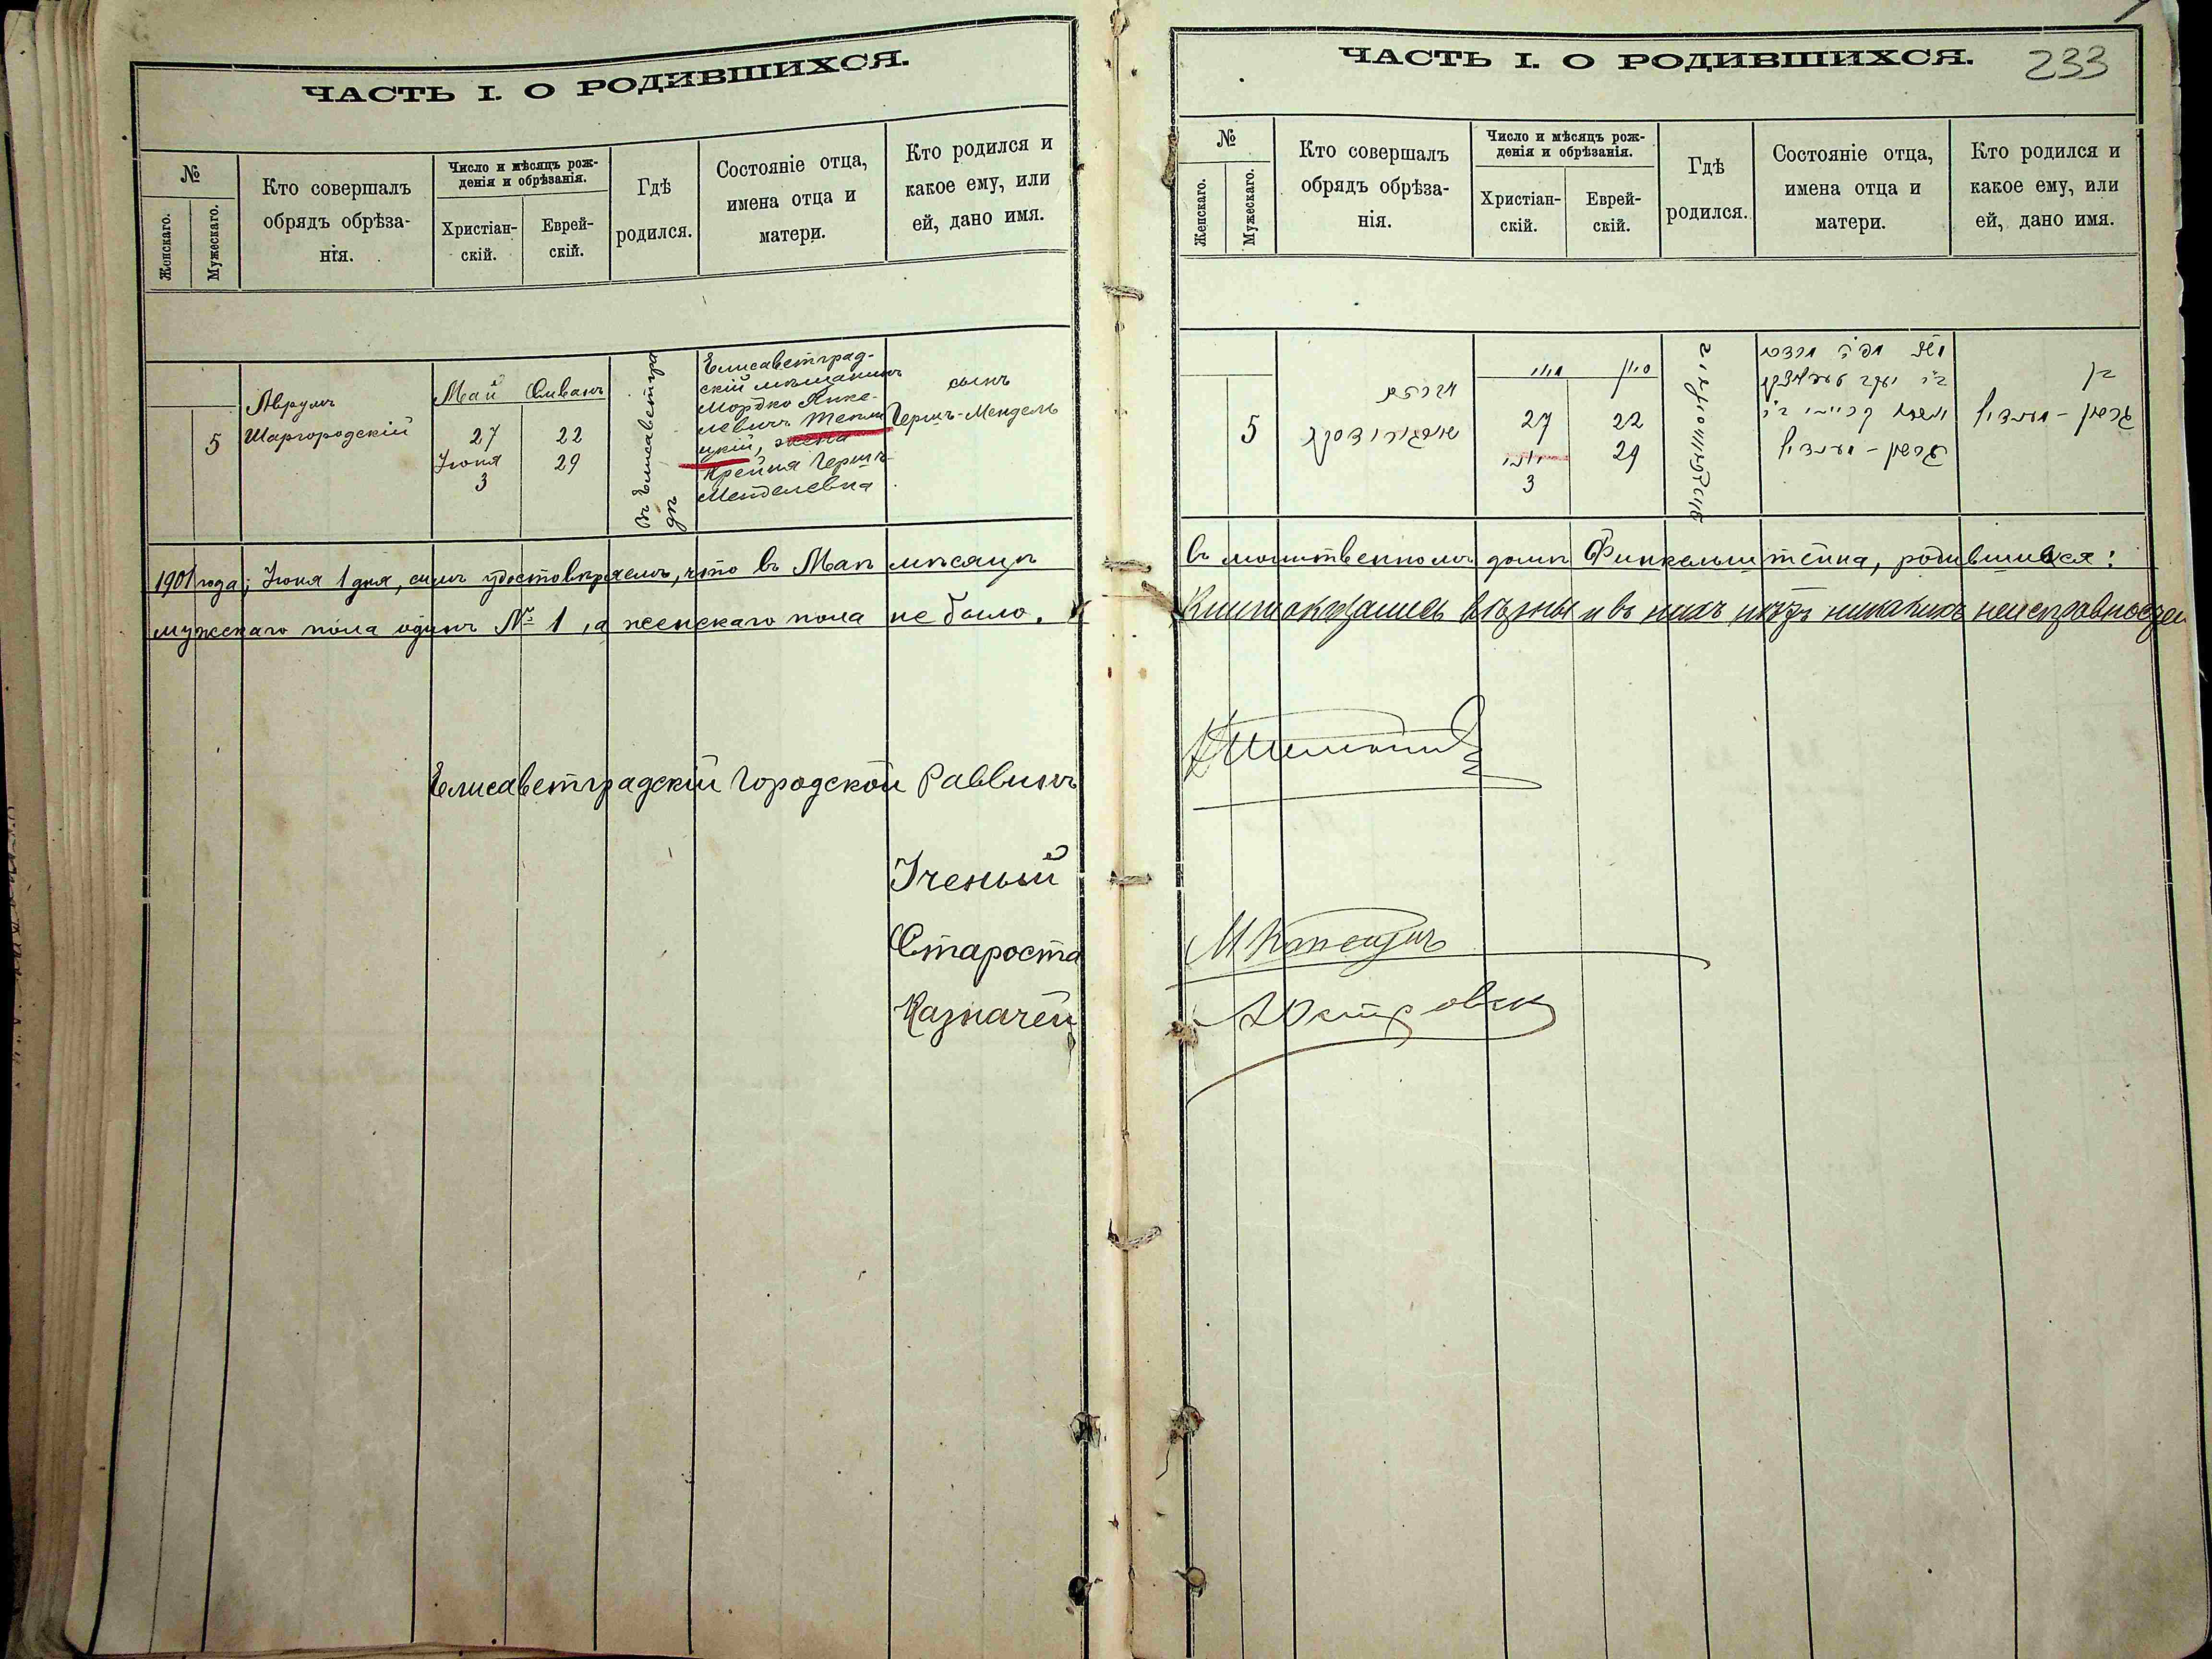 ЧАСТЬ I. О РОДИВШИХСЯ.
№
Женскаго.
Мужескаго.
Кто совершалъ
обрядъ обрѣза-
нія.
Число и мѣсяцъ рож-
денія и обрѣзанія.
Христіан-
скій.
Еврей-
скій.
Гдѣ
родился.
Состояніе отца,
имена отца и
матери.
Кто родился и
какое ему, или
ей, дано имя.
5
Аврумъ
Шаргородскій
Май
27
Іюня
3
Сиванъ
22
29
Въ Елисаветгра
дѣ
Елисаветград-
скій мѣщанинъ
Мордко Янке-
левичъ
цкій, жена
Крейня Гершъ-
Менделевна
сынъ
Гершъ-Мендель
1901 года; Іюня 1 дня, симъ удостовѣряемъ, что въ Маѣ мѣсяцѣ
мужскаго пола одинъ № 1, а женскаго пола не было.
Елисаветградскій Городской Раввинъ
Ученый
Староста
Казначей
ЧАСТЬ I. О РОДИВШИХСЯ.
233
№
Женскаго.
Мужескаго.
Кто совершалъ
обрядъ обрѣза-
нія.
Число и мѣсяцъ рож-
денія и обрѣзанія.
Христіан-
скій.
Еврей-
скій.
Гдѣ
родился.
Состояніе отца,
имена отца и
матери.
Кто родился и
какое ему, или
ей, дано имя.
5
מאי
27
יוני
3
סיון
22
29
גרשון - מענדיל
בן
גרשון - מענדיל
въ молитвенномъ домѣ Финкельштейна, родившихся:
Книги оказались вѣрны и въ нихъ нѣтъ никакихъ неисправностей